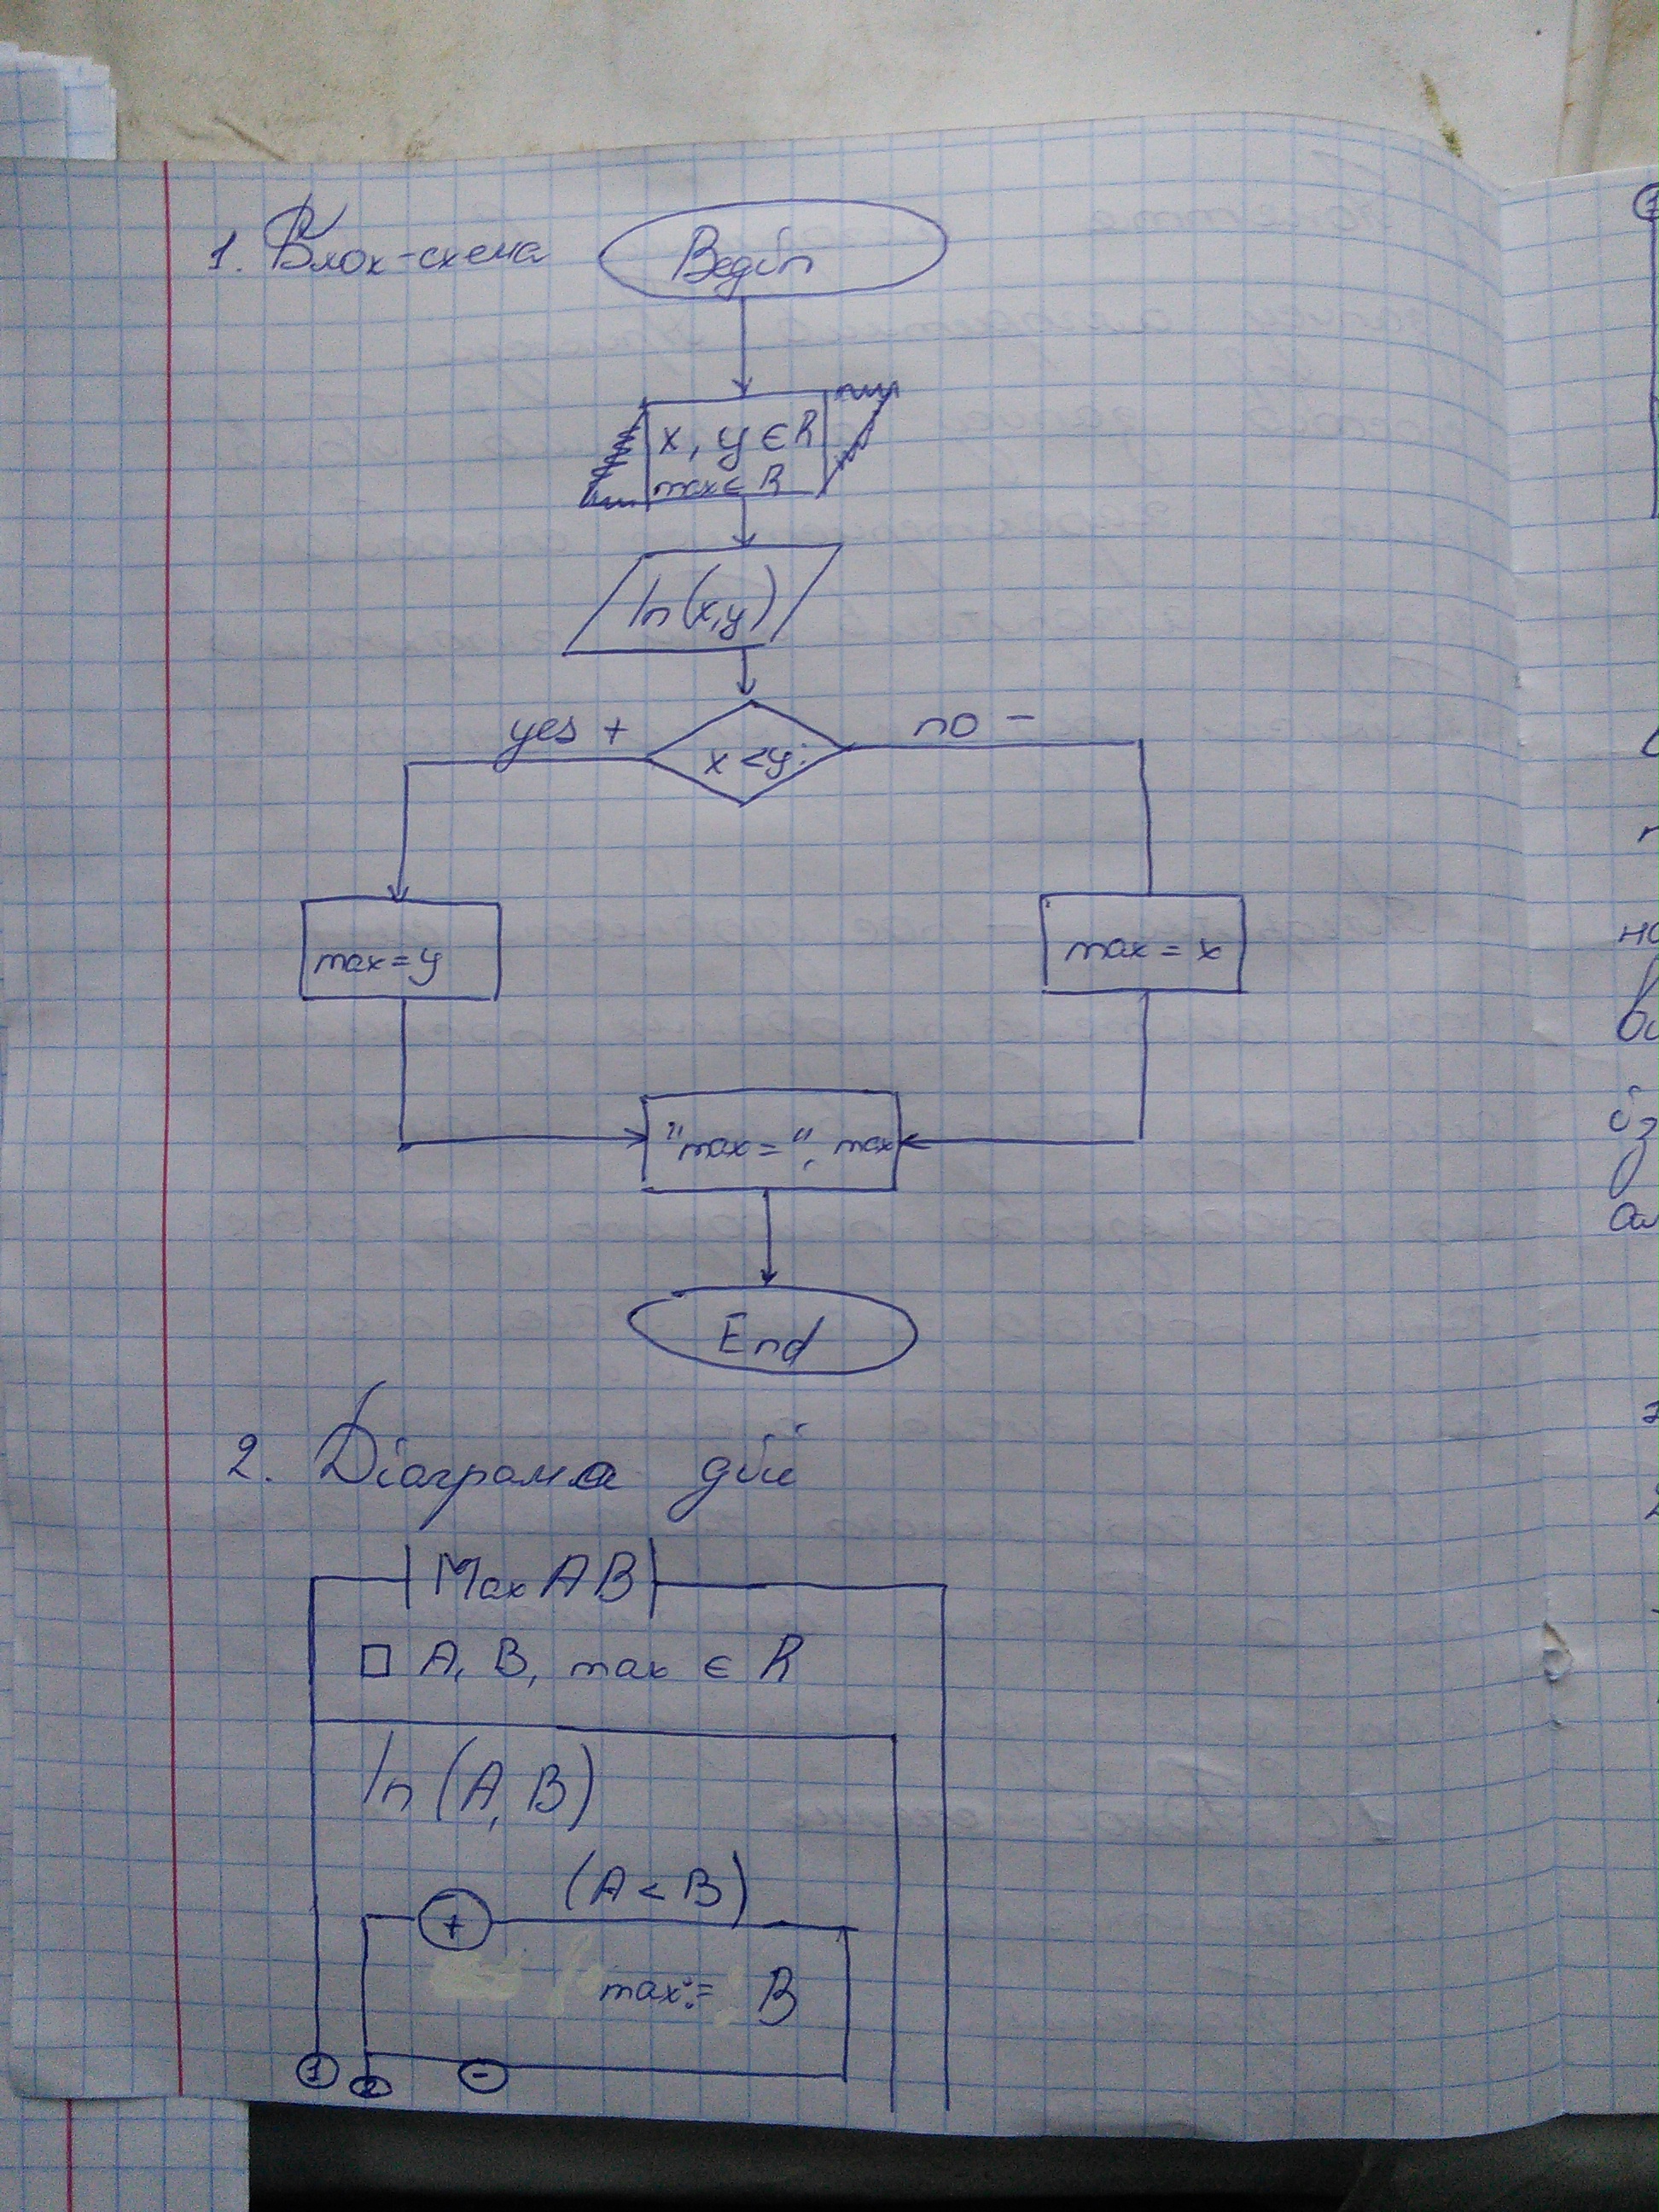 1. Блок-схема
Begin
x, y ∈ R
max ∈ R
In(x,y)
yes + no -
x < y:
max = y
max = x
"max = ", max
End
2. Діаграма дій
Max AB
□ A, B, max ∈ R
In (A, B)
(A < B)
+
max:= B
1 2 -